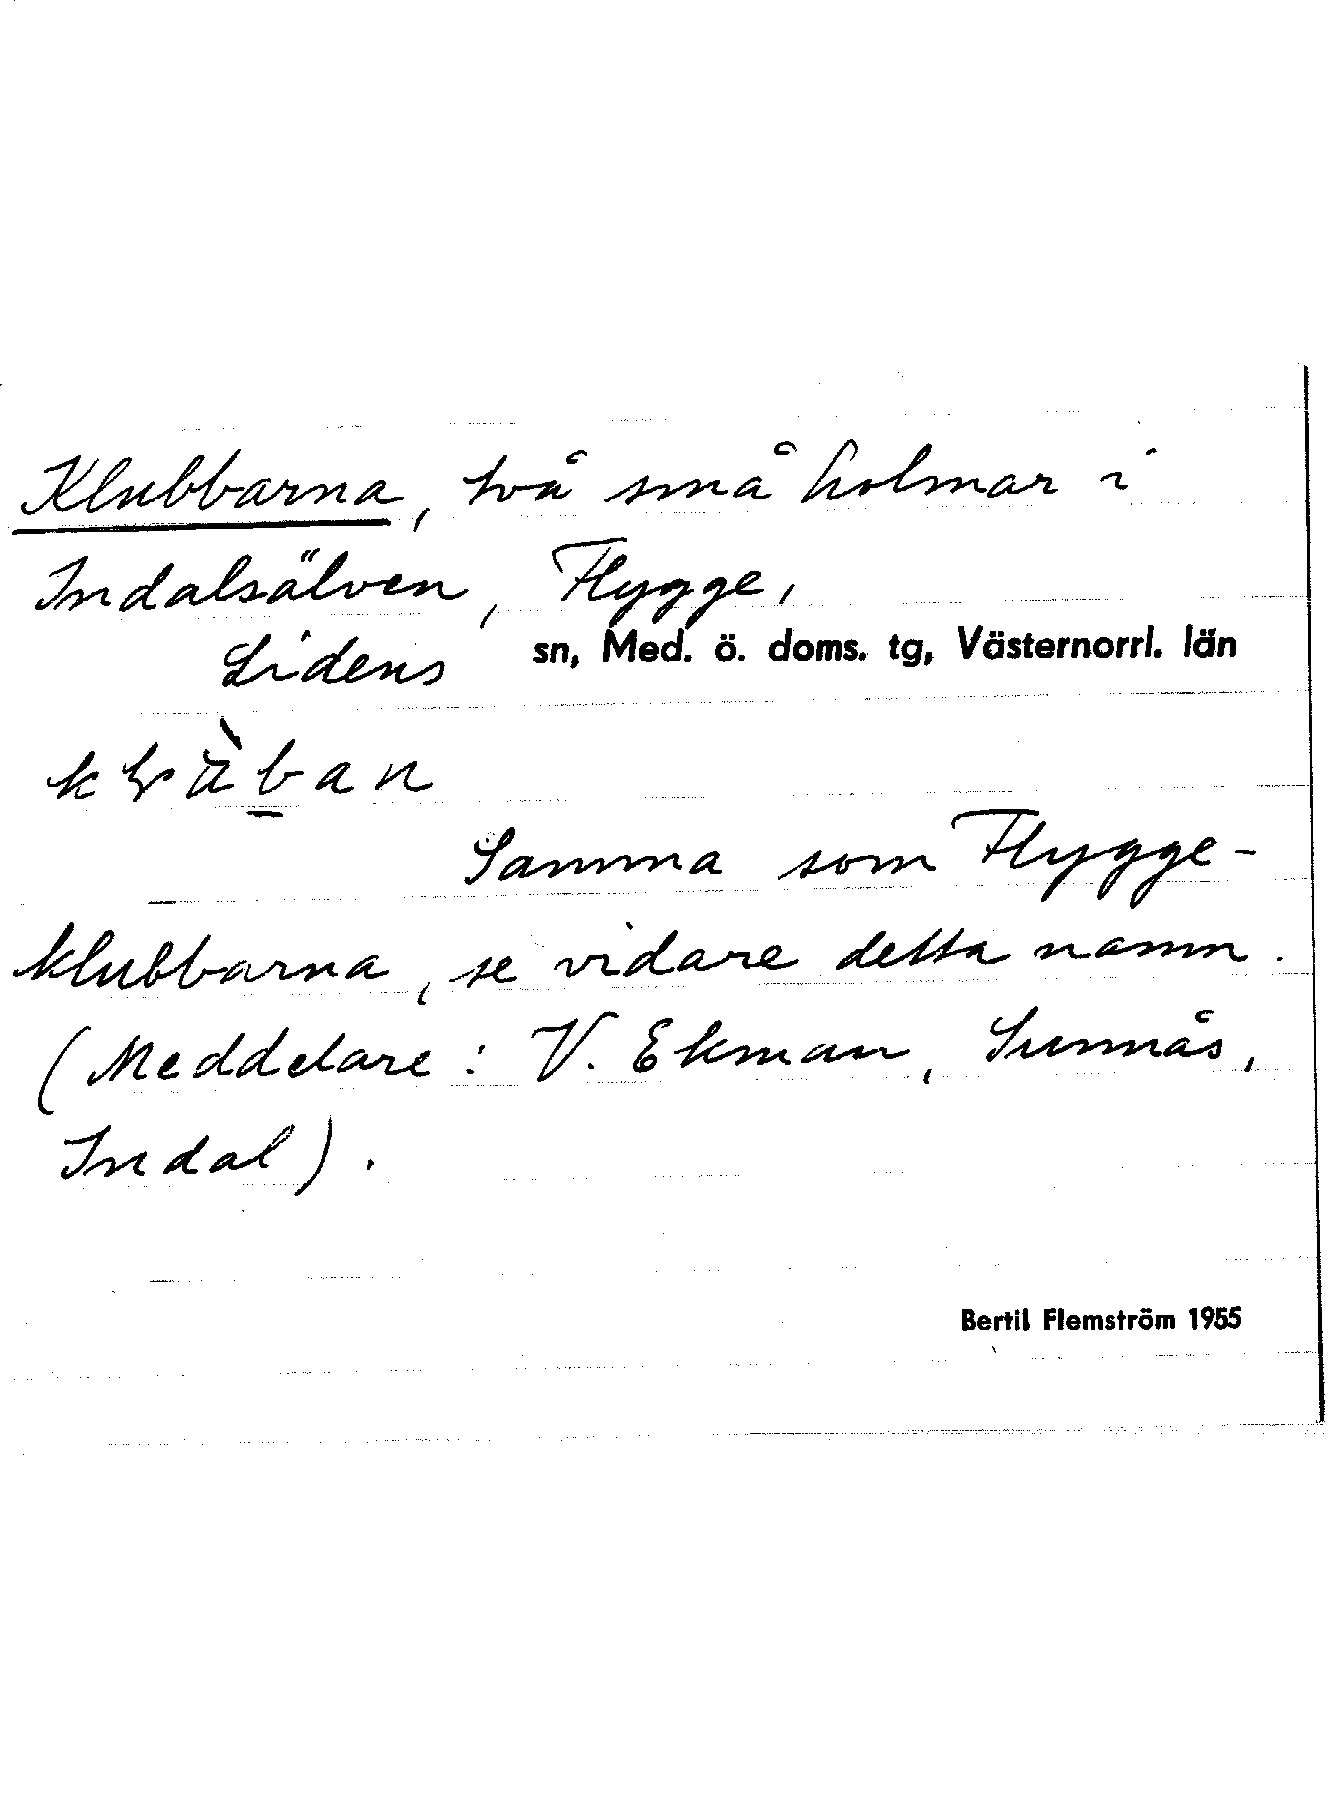 Klubbarna, två små holmar i
Indalsälven, Flygge,
Lidens sn, Med. ö. doms. tg, Västernorrl. län
Samma som Flygge-
klubbarna, se vidare detta namn.
(Meddelare: V. Ekman, Sunnås,
Indal).
Bertil Flemström 1955